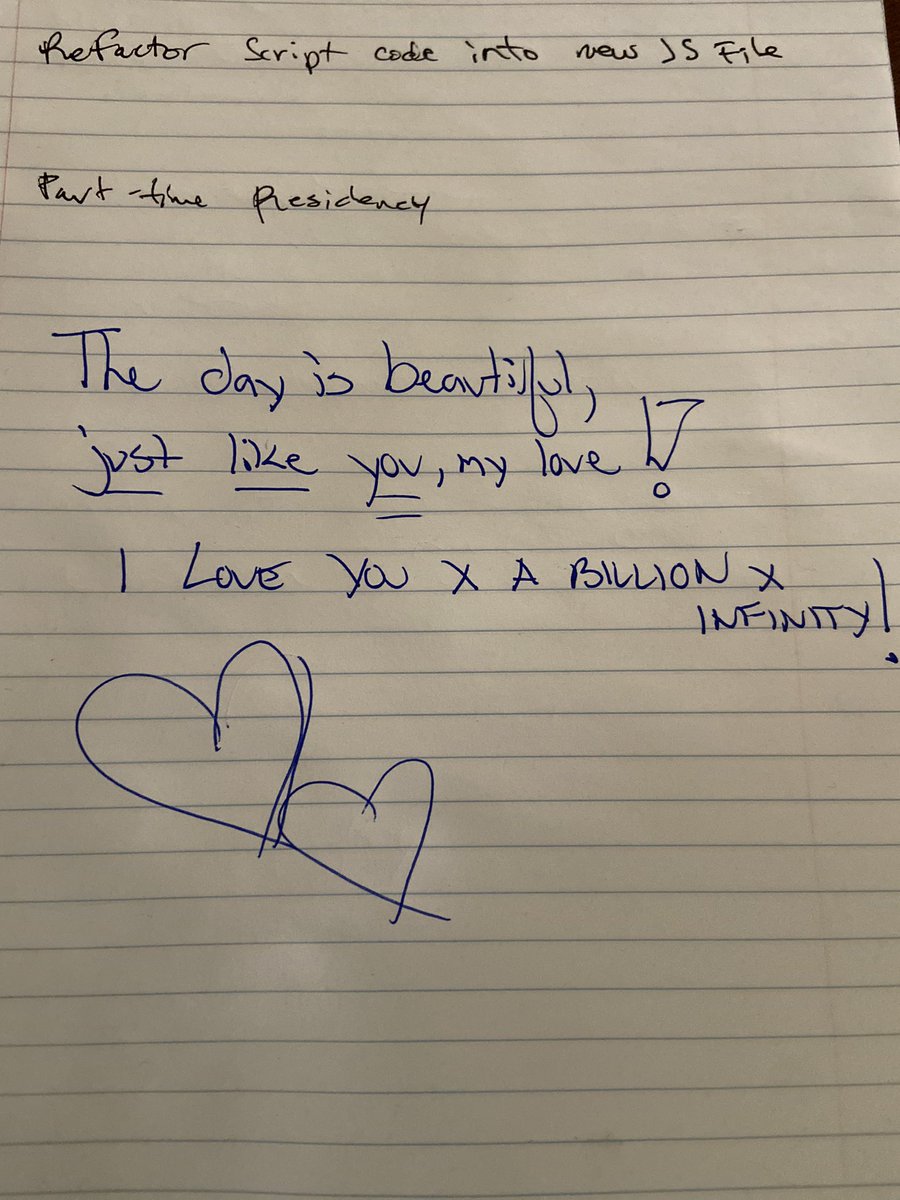 Refactor Script code into new JS File
Part-time Presidency
The day is beautiful,
just like you, my love!
I LOVE YOU X A BILLION X
INFINITY!